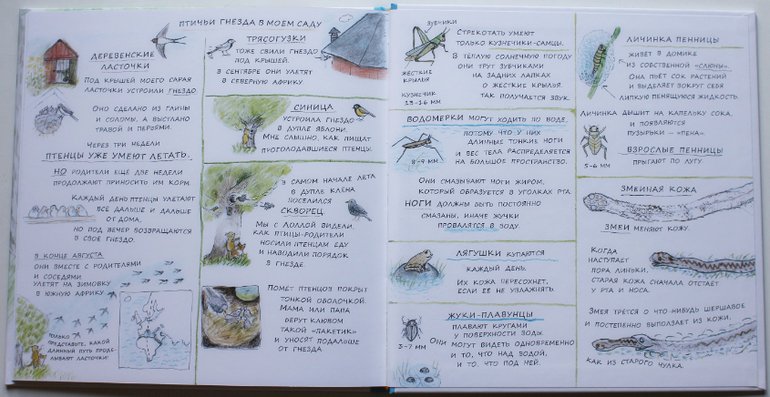 ПТИЧЬИ ГНЕЗДА В МОЕМ САДУ
ДЕРЕВЕНСКИЕ
ЛАСТОЧКИ
ПОД КРЫШЕЙ МОЕГО САРАЯ
ЛАСТОЧКИ УСТРОИЛИ ГНЕЗДО.
ОНО СДЕЛАНО ИЗ ГЛИНЫ
И СОЛОМЫ, А ВЫСТЛАНО
ТРАВОЙ И ПЕРЬЯМИ.
ЧЕРЕЗ ТРИ НЕДЕЛИ
ПТЕНЦЫ УЖЕ УМЕЮТ ЛЕТАТЬ,
НО РОДИТЕЛИ ЕЩЕ ДВЕ НЕДЕЛИ
ПРОДОЛЖАЮТ ПРИНОСИТЬ ИМ КОРМ.
КАЖДЫЙ ДЕНЬ ПТЕНЦЫ УЛЕТАЮТ
ВСЕ ДАЛЬШЕ И ДАЛЬШЕ
ОТ ДОМА,
НО ПОД ВЕЧЕР ВОЗВРАЩАЮТСЯ
В СВОЁ ГНЕЗДО.
В КОНЦЕ АВГУСТА
ОНИ ВМЕСТЕ С РОДИТЕЛЯМИ
И СОСЕДЯМИ
УЛЕТЯТ НА ЗИМОВКУ
В ЮЖНУЮ АФРИКУ.
ТОЛЬКО
ПРЕДСТАВЬТЕ, КАКОЙ
ДЛИННЫЙ ПУТЬ ПРОДЕ-
ЛЫВАЮТ ЛАСТОЧКИ!
ТРЯСОГУЗКИ
ТОЖЕ СВИЛИ ГНЕЗДО
ПОД КРЫШЕЙ.
В СЕНТЯБРЕ ОНИ УЛЕТЯТ
В СЕВЕРНУЮ АФРИКУ
СИНИЦА
УСТРОИЛА ГНЕЗДО
В ДУПЛЕ ЯБЛОНИ.
МНЕ СЛЫШНО, КАК ПИЩАТ
ПРОГОЛОДАВШИЕСЯ ПТЕНЦЫ.
В САМОМ НАЧАЛЕ ЛЕТА
В ДУПЛЕ КЛЕНА
ПОСЕЛИЛСЯ
СКВОРЕЦ.
МЫ С ЛОЛЛОЙ ВИДЕЛИ,
КАК ПТИЦЫ-РОДИТЕЛИ
НОСИЛИ ПТЕНЦАМ ЕДУ
И НАВОДИЛИ ПОРЯДОК
В ГНЕЗДЕ.
ПОМЕТ ПТЕНЦОВ ПОКРЫТ
ТОНКОЙ ОБОЛОЧКОЙ.
МАМА ИЛИ ПАПА
БЕРУТ КЛЮВОМ
ТАКОЙ «ПАКЕТИК»
И УНОСЯТ ПОДАЛЬШЕ
ОТ ГНЕЗДА
ЗУБЧИКИ
ЖЁСТКИЕ
КРЫЛЬЯ
КУЗНЕЧИК
13-16 ММ
СТРЕКОТАТЬ УМЕЮТ
ТОЛЬКО КУЗНЕЧИКИ-САМЦЫ.
В ТЕПЛУЮ СОЛНЕЧНУЮ ПОГОДУ
ОНИ ТРУТ ЗУБЧИКАМИ
НА ЗАДНИХ ЛАПКАХ
О ЖЕСТКИЕ КРЫЛЬЯ.
ТАК ПОЛУЧАЕТСЯ ЗВУК.
ВОДОМЕРКИ МОГУТ ХОДИТЬ ПО ВОДЕ,
ПОТОМУ ЧТО У НИХ
ДЛИННЫЕ ТОНКИЕ НОГИ
И ВЕС ТЕЛА РАСПРЕДЕЛЯЕТСЯ
НА БОЛЬШОЕ ПРОСТРАНСТВО.
8-9 ММ
ОНИ СМАЗЫВАЮТ НОГИ ЖИРОМ,
КОТОРЫЙ ОБРАЗУЕТСЯ В УГОЛКАХ РТА.
НОГИ ДОЛЖНЫ БЫТЬ ПОСТОЯННО
СМАЗАНЫ, ИНАЧЕ ЖУЧКИ
ПРОВАЛЯТСЯ В ВОДУ
ЛЯГУШКИ КУПАЮТСЯ
КАЖДЫЙ ДЕНЬ.
ИХ КОЖА ПЕРЕСОХНЕТ,
ЕСЛИ ЕЕ НЕ УВЛАЖНЯТЬ.
ЖУКИ-ПЛАВУНЦЫ
ПЛАВАЮТ КРУГАМИ
У ПОВЕРХНОСТИ ВОДЫ.
3-7 ММ
ОНИ МОГУТ ВИДЕТЬ ОДНОВРЕМЕННО
И ТО, ЧТО НАД ВОДОЙ,
И ТО, ЧТО ПОД НЕЙ.
ЛИЧИНКА ПЕННИЦЫ
ЖИВЕТ В ДОМИКЕ
ИЗ СОБСТВЕННОЙ «СЛЮНЫ».
ОНА ПЬЁТ СОК РАСТЕНИЙ
И ВЫДЕЛЯЕТ ВОКРУГ СЕБЯ
ЛИПКУЮ ПЕНЯЩУЮСЯ ЖИДКОСТЬ.
ЛИЧИНКА ДЫШИТ НА КАПЕЛЬКУ СОКА,
И ПОЯВЛЯЮТСЯ
ПУЗЫРЬКИ – «ПЕНА».
ВЗРОСЛЫЕ ПЕННИЦЫ
ПРЫГАЮТ ПО ЛУГУ.
5-6 ММ
ЗМЕИНАЯ КОЖА
ЗМЕИ МЕНЯЮТ КОЖУ.
КОГДА
НАСТУПАЕТ
ПОРА ЛИНЬКИ,
СТАРАЯ КОЖА СНАЧАЛА ОТСТАЕТ
У РТА И НОСА.
ЗМЕЯ ТРЕТСЯ О ЧТО-НИБУДЬ ШЕРШАВОЕ
И ПОСТЕПЕННО ВЫПОЛЗАЕТ ИЗ КОЖИ,
КАК ИЗ СТАРОГО ЧУЛКА.